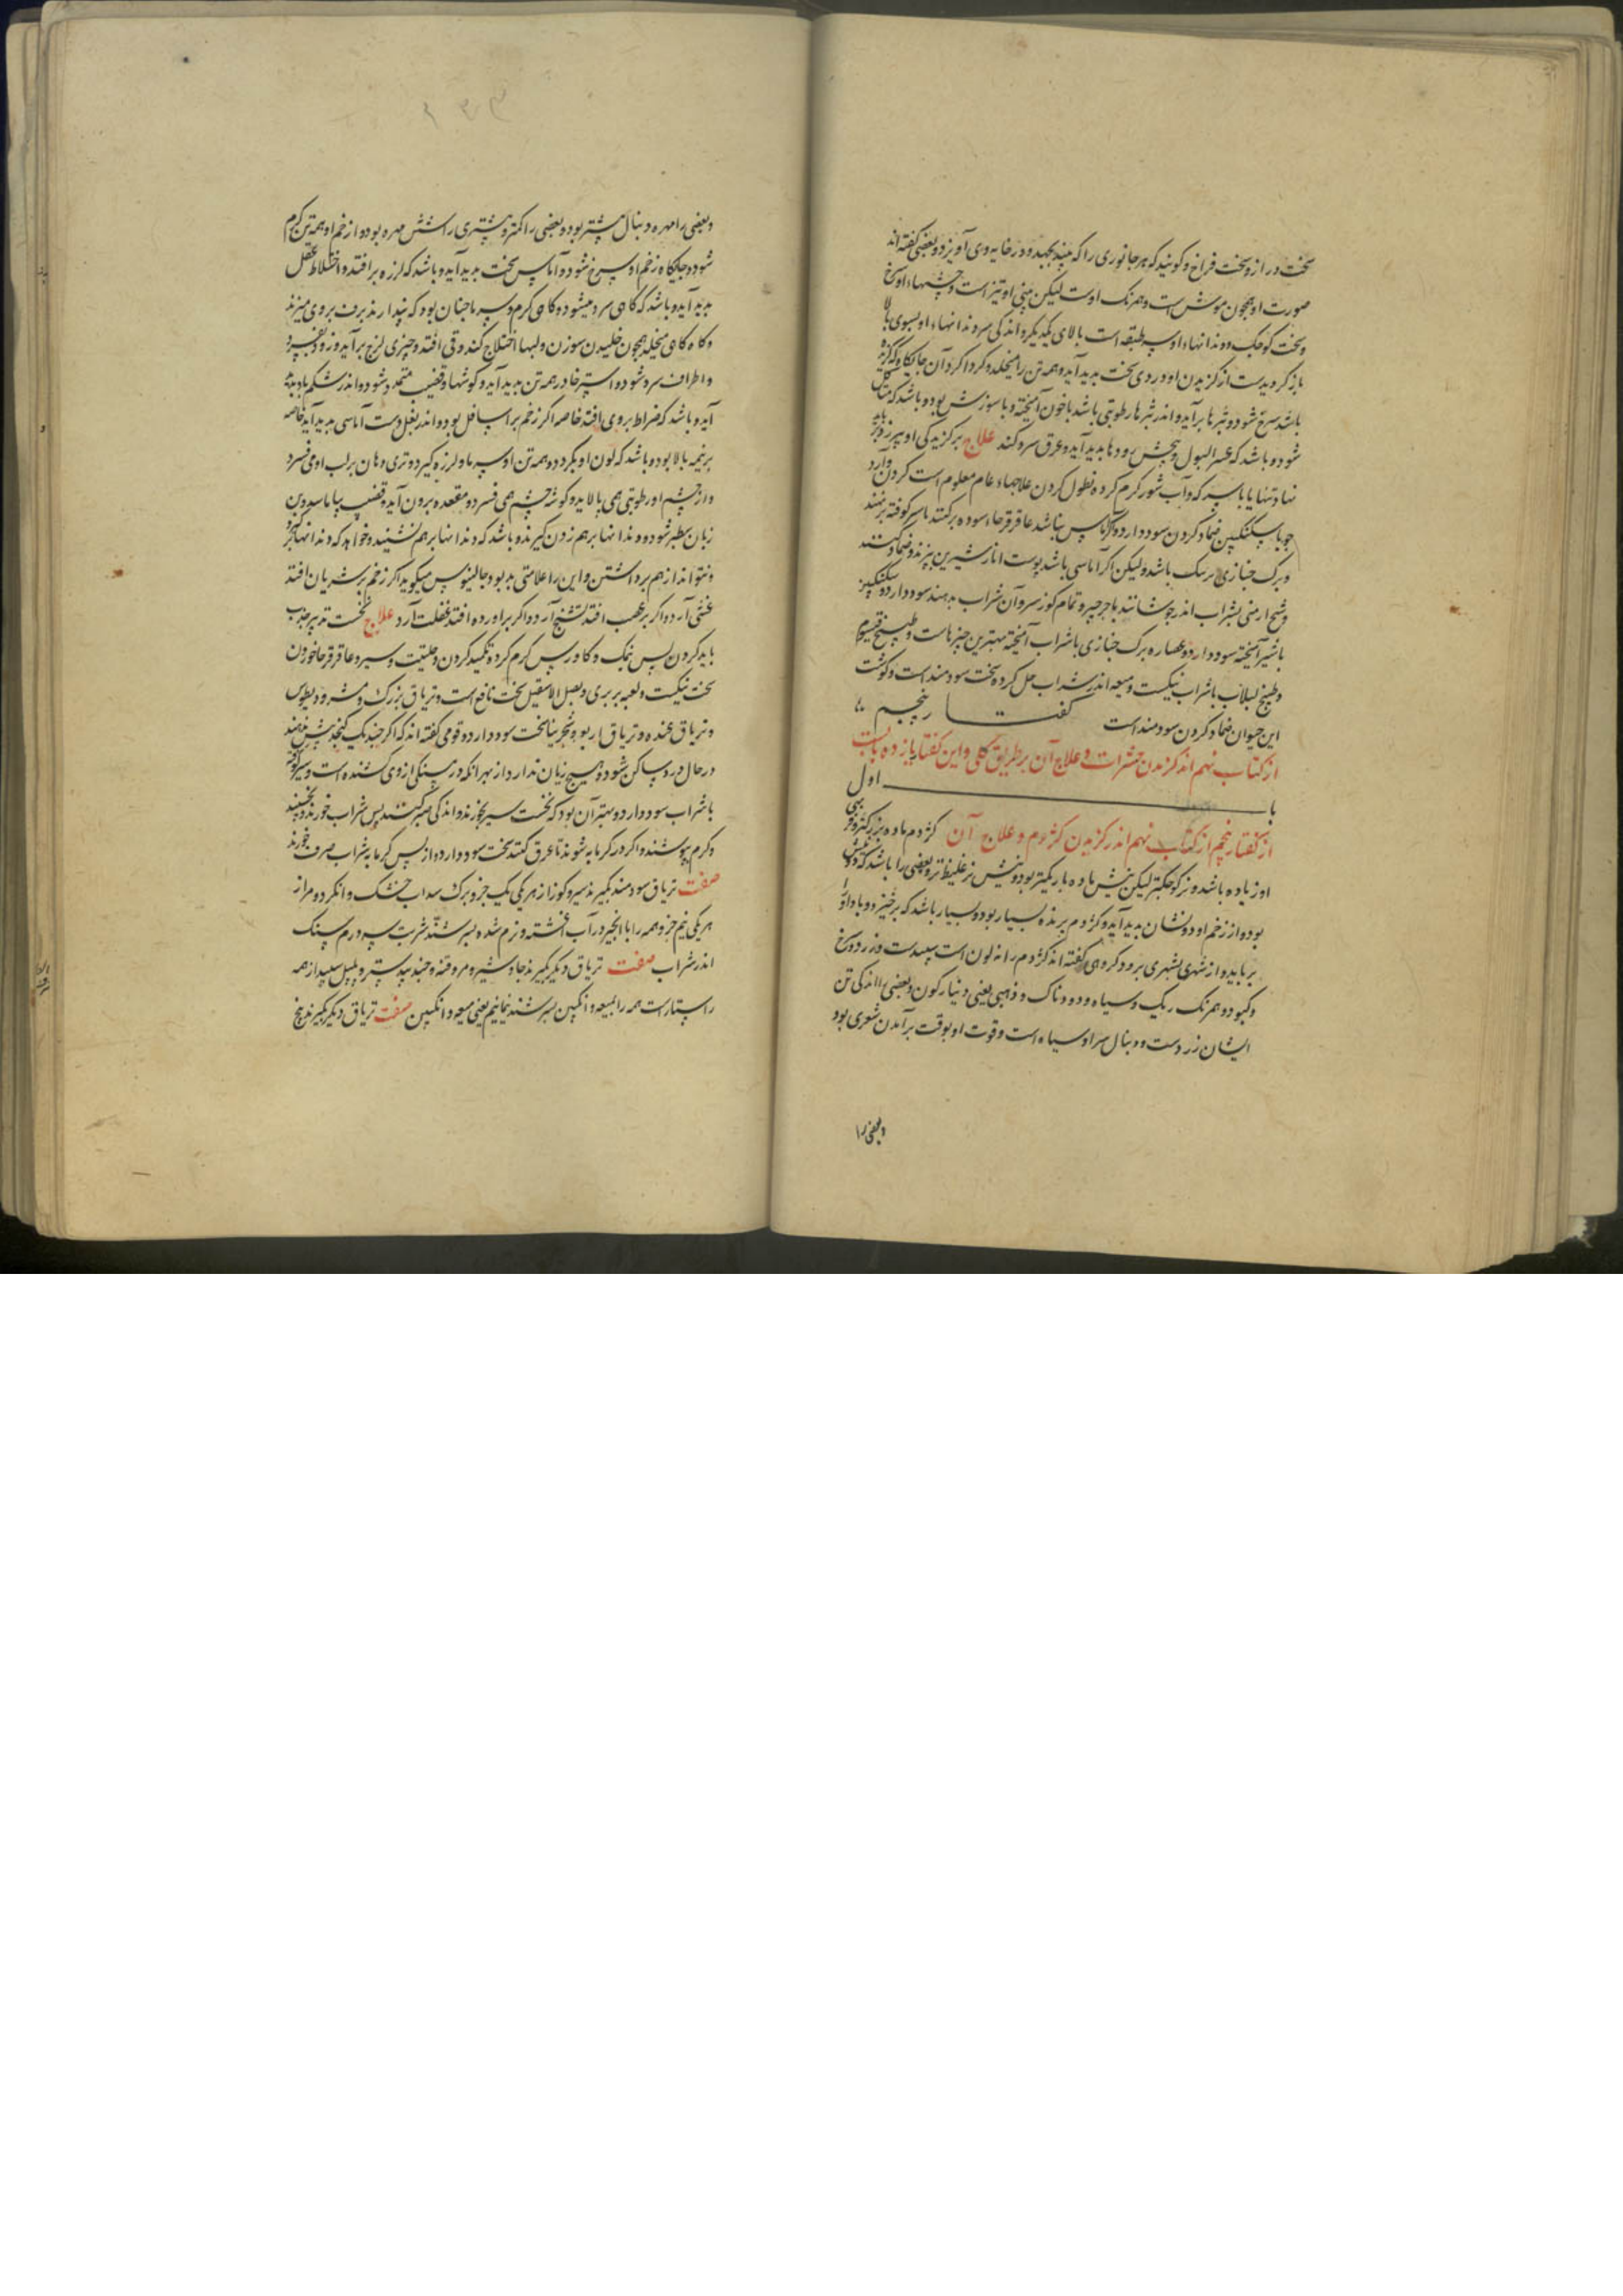 سخت دراز و سخت فراخ و کویند که هر جانوری را که بیند بجهد و در خایه وی آویزد و بعضی کفته اند
صورت او همچون موش است و همرنک اوست لیکن بینی او تیز است و چشمهاء او سخ
و سخت کوچک و دندانهاء او سه طبقه است بالای یکدیکر و اندکی سر دندانهاء او بسوی بالا
باز کردیدست از کزیدن او دردی سخت بدید آید و همه تن را میخلد و کرداکرد آن جایکاه که کزیده
باشد سرخ شود و بثرها برآید و اندر بثرها رطوبتی باشد باخون آمیخته و با سوزش بود و باشد که
شود و باشد که عسر البول و پیچش رودها بدید آید و عرق سرد کند علاج بر کزیدکی او
نهاد تنها یا با سرکه و آب شور کرم کرده نطول کردن علاجهاء عام معلوم است کردن و آرد
جو با سکنکبین ضماد کردن سود دارد و اکر آماس نباشد عاقرقرحاء سوده برکنند یا سیر کوفته برنهند
و برک خبازی باشد ولیکن اکر آماسی باشد پوست انار شیرین بپزند و ضماد کنند
و شیح ارمنی بشراب اندر جوشانند یا جرجیر و تمام کوز سرو آن شراب بدهند سود دارد و سکنکبین
با شیر آمیخته سود دارد و عصاره برک خبازی با شراب آمیخته بهترین چیزهاست و طبیخ قیسوم
و طبیخ لبلاب با شراب نیکست و میعه اندر شراب حل کرده سخت سودمند است و کوشت
این حیوان ضماد کردن سودمند است کفتار پنجم
از کتاب نهم اندر کزیدن حشرات و علاج آن بر طریق کلی و این کفتار یازده بابست
با اول
از کفتار پنجم از کتاب نهم اندر کزیدن کژدم و علاج آن کژدم ماده بزرکتر و فربهی
او زیاده باشد و نر کوچکتر لیکن نیش ماده باریکتر بود و نیش نر غلیظتر و بعضی را باشد که دو نیش
بود و از زخم او دو نشان بدید آید و کژدم پرنده بسیار بود و بسیار باشد که برخیزد و باد او را
برباید و از شهری بشهری برد و کروهی کفته اند کژدم را نه لون است سپیدست و زرد و سرخ
و کبود و همرنک ریک و سیاه و دودناک و ذهبی یعنی دینار کون و بعضی را اندکی تن
ایشان زردست و دنبال سر او سیاه است و قوت او بوقت برآمدن شعری بود
و بعضی را
و بعضی را مهره دنبال بیشتر بود و بعضی را کمتر و بیشتری را شش مهره بود و از زخم او همه تن کرم
شود و جایکاه زخم او سرخ شود و آماس سخت بدید آید و باشد که لرزه بر افتد و اختلاط عقل
بدید آید و باشد که کاهی سرد میشود و کاهی کرم و سرما چنان بود که پندارند برف بروی میریزند
و کاه کاهی میخلد همچون خلیدن سوزن و لبها اختلاج کند و قی افتد و چیزی لزج برآید و زود بفسرد
و اطراف سرد شود و استرخا در همه تن بدید آید و کوشها و قضیب متمدد شود و اندر شکم باد بدید
آید و باشد که ضراط بروی افتد خاصه اکر زخم بر اسافل بود و اندر بغل دست آماسی بدید آید خاصه
بر نیمه بالا بود و باشد که لون او بکردد و همه تن او سرما و لرزه کیرد و تری دهان بر لب او می فسرد
و از چشم او رطوبتی همی پالاید و کوشه چشم همی فسرد و مقعده برون آید و قضیب بیاماسد و بن
زبان سطبر شود و دندانها برهم زدن کیرد و باشد که دندانها برهم نشیند و خواهد که دندانها
و نتواند از هم برداشتن و این را علامتی بد بود و جالینوس میکوید اکر زخم بر شریان افتد
غشی آرد و اکر بر عصب افتد تشنج آرد و اکر بر اورده افتد غفلت آرد علاج نخست تدبیر جذب
باید کردن پس نمک و کاورس کرم کرده تکمید کردن و حلتیت و سیر و عاقرقرحا خوردن
سخت نیکست و لعبه بربری و بصل الاسقیل سخت نافع است و تریاق بزرک و مثرودیطوس
و تریاق عنده و تریاق اربعه و شجرینا سخت سود دارد و قومی کفته اند که اکر چند یک کنجد بیش بدهند
در حال درد ساکن شود و هیچ زیان ندارد از بهر آنکه درم سنکی از وی کشنده است و سیر کوفته
با شراب سود دارد و بهتر آن بود که نخست سیر بخورند و اندکی صبر کنند پس شراب خورند و بخسبند
و کرم بپوشند و اکر در کرمابه شوند تا عرق کنند سخت سود دارد و از پس کرمابه شراب صرف خورند
صفت تریاق سودمند بکیرند سیر و کوز از هر یکی یک جزو برک سداب خشک و انکزد و مر از
هر یکی نیم جزو همه را با انجیر در آب آغشته و نرم شده بسرشند شربت سه درم سنک
اندر شراب صفت تریاق دیکر بکیرند جاوشیر و مر و قنه و جندبیدستر و پلپل سپید از همه
راستاراست همه را بمیعه و انکبین بسرشند نیمانیم یعنی میعه و انکبین صفت تریاق دیکر بکیرند بیخ